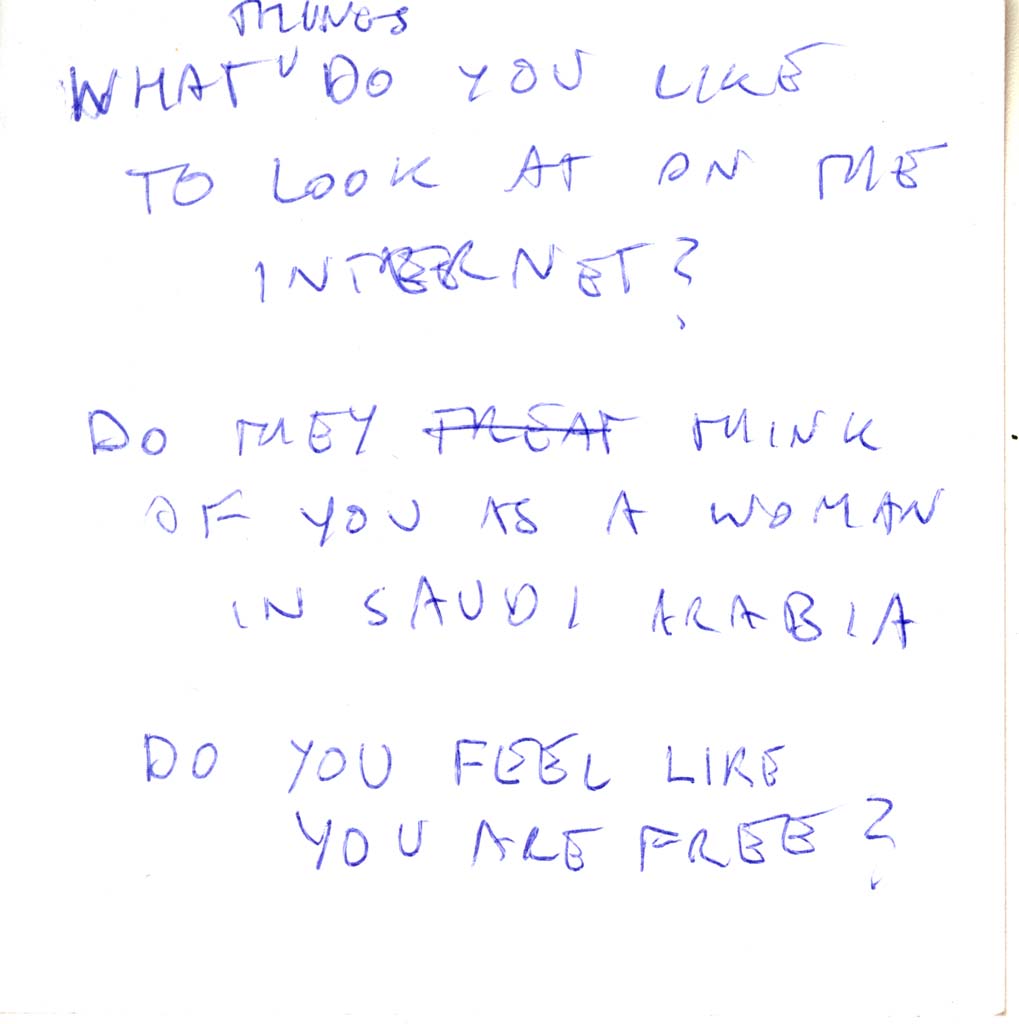 THINGS
WHAT DO YOU LIKE
TO LOOK AT ON THE
INTERNET?
DO THEY TREAT THINK
OF YOU AS A WOMAN
IN SAUDI ARABIA
DO YOU FEEL LIKE
YOU ARE FREE?